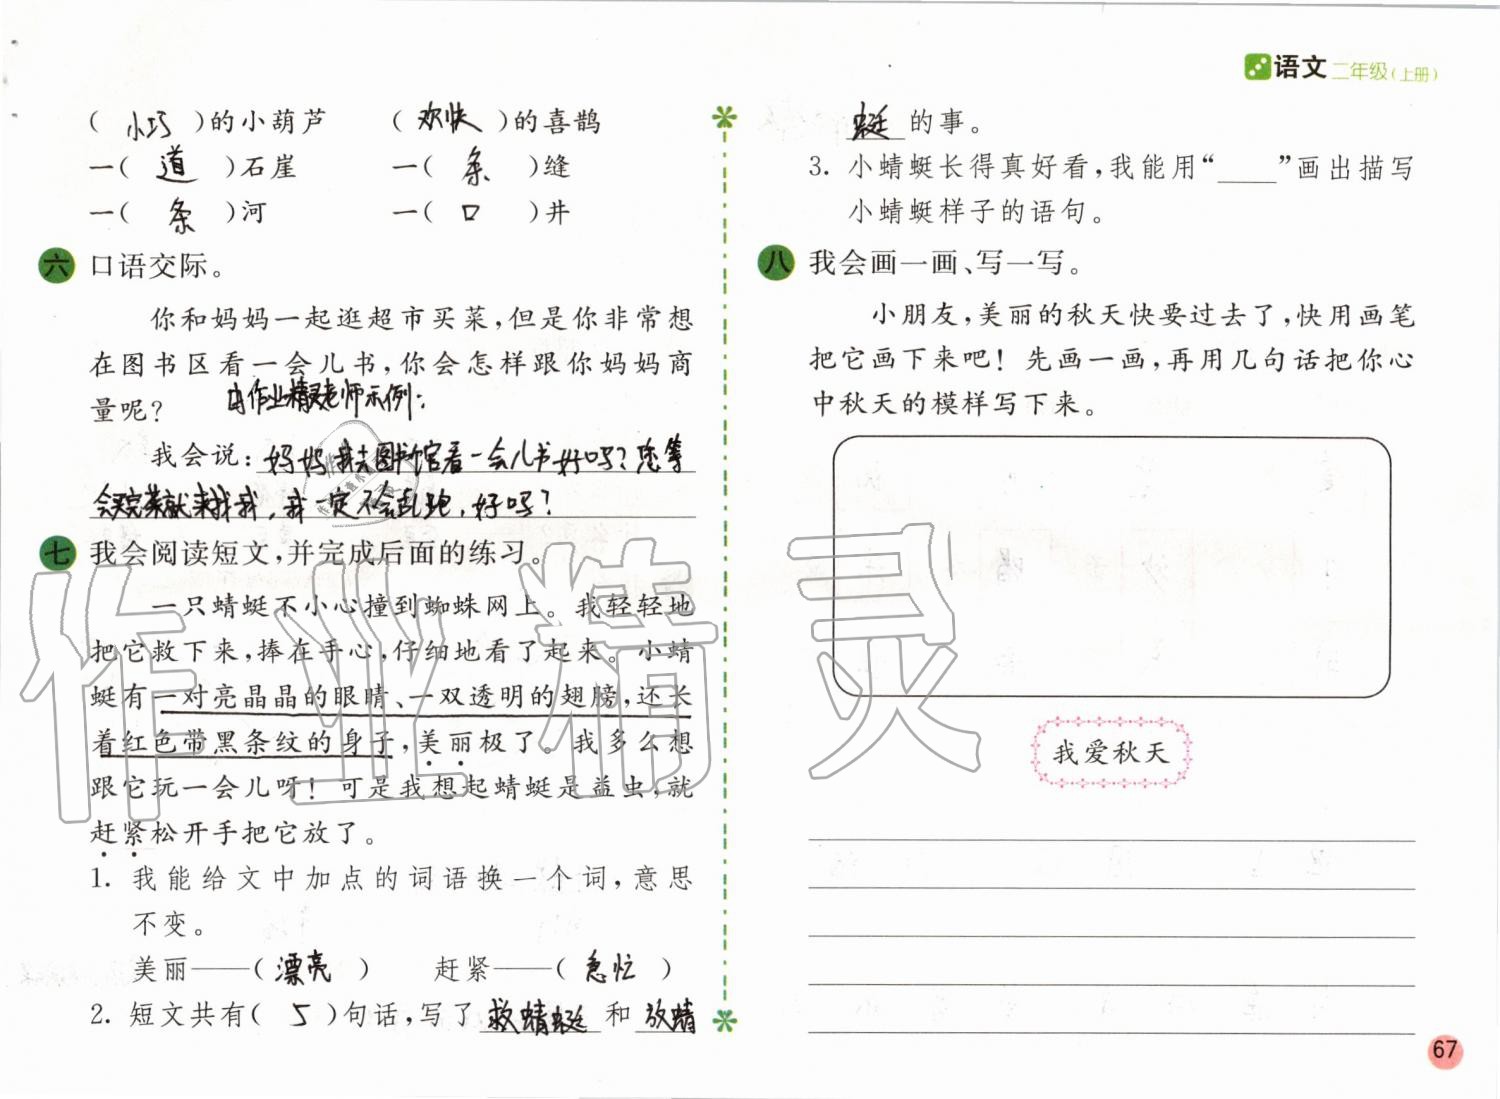 语文 二年级(上册)
( 小巧 )的小葫芦 ( 欢快 )的喜鹊
一( 道 )石崖 一( 条 )缝
一( 条 )河 一( 口 )井
六 口语交际。
你和妈妈一起逛超市买菜,但是你非常想
在图书区看一会儿书,你会怎样跟你妈妈商
量呢? 由作业精灵老师示例:
我会说:妈妈我去图书馆看一会儿书好吗?您等
会买完菜就来找我,我一定不会乱跑,好吗?
七 我会阅读短文,并完成后面的练习。
一只蜻蜓不小心撞到蜘蛛网上。我轻轻地
把它救下来,捧在手心,仔细地看了起来。小蜻
蜓有一对亮晶晶的眼睛、一双透明的翅膀,还长
着红色带黑条纹的身子,美丽极了。我多么想
跟它玩一会儿呀!可是我想起蜻蜓是益虫,就
赶紧松开手把它放了。
1. 我能给文中加点的词语换一个词,意思
不变。
美丽——( 漂亮 ) 赶紧——( 急忙 )
2. 短文共有( 5 )句话,写了 救蜻蜓 和 放蜻
蜓 的事。
3. 小蜻蜓长得真好看,我能用“____”画出描写
小蜻蜓样子的语句。
八 我会画一画、写一写。
小朋友,美丽的秋天快要过去了,快用画笔
把它画下来吧!先画一画,再用几句话把你心
中秋天的模样写下来。
我爱秋天
67
作业精灵